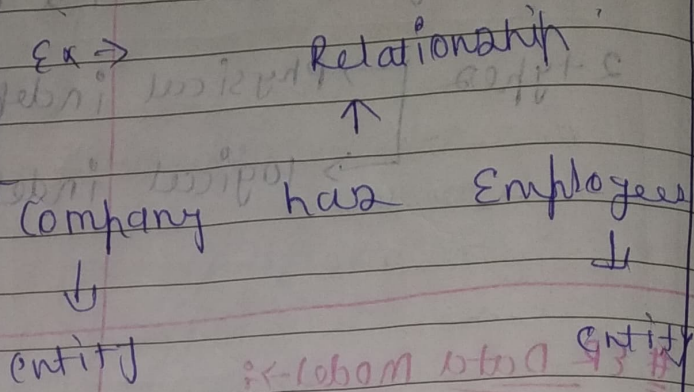 Ex ⇒ Relationship
↑
Company has Employees
↓ ↓
entity entity